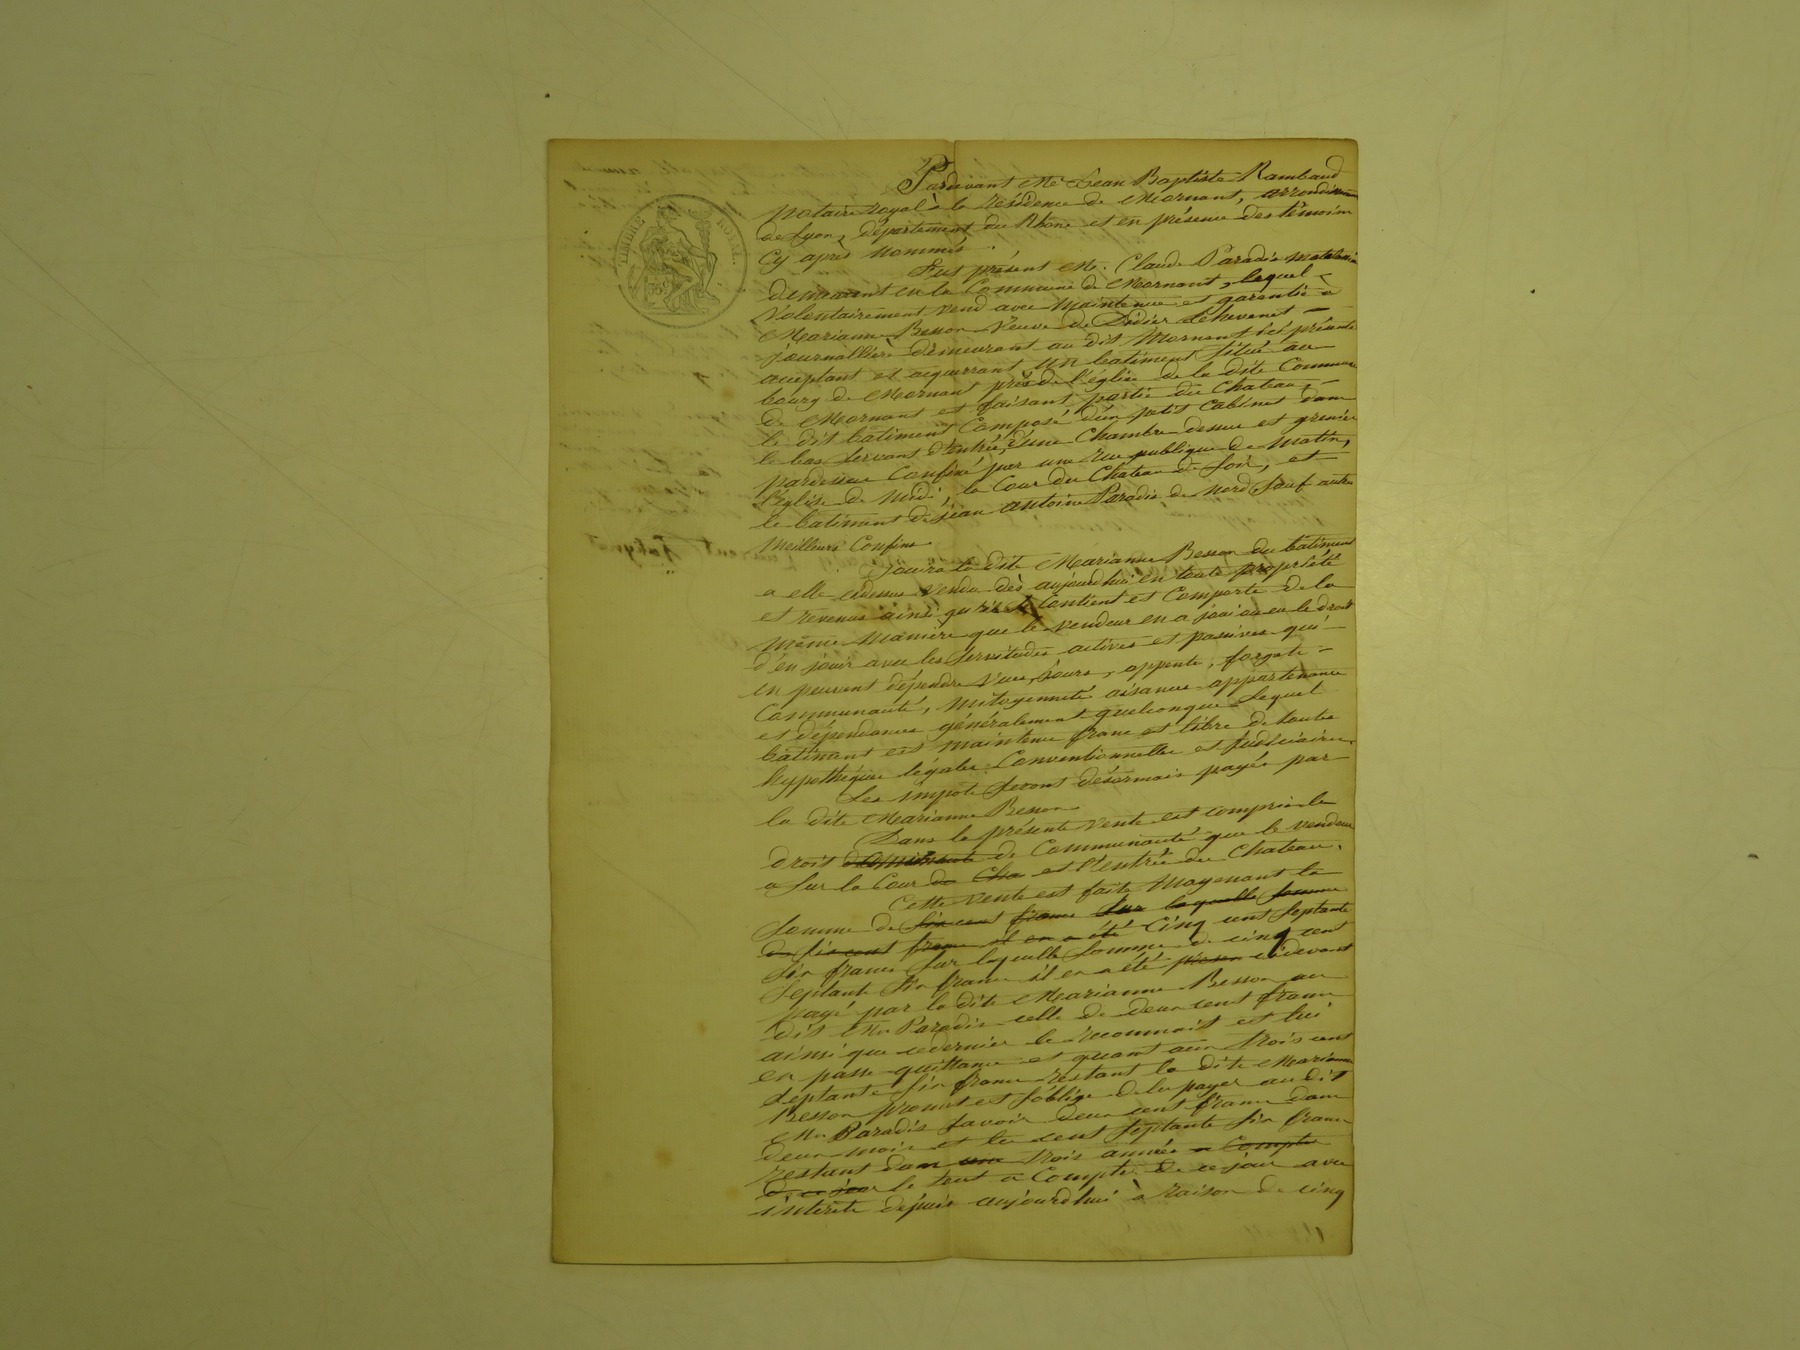 TIMBRE ROYAL.
Pardevant Me Jean Baptiste Rambaud
notaire royal à la résidence de Mornant, arrondissem
de Lyon, département du Rhone et en présence des témoins
Cy après Nommés
Fut présent Mr. Claude Paradis
demeurant en la Commune de Mornant, lequel
volontairement vend avec maintenue et garantie à
Marianne Besson Veuve de Didier
journallière demeurant au dit Mornant ici présente
acceptant et acquerrant un batiment situé au
bourg de Mornant près de l'église de la dite Commune
de Mornant et faisant partie du Chateau,
le dit batiment Composé d'un petit Cabinet dans
le bas servant d'entrée, d'une Chambre dessus et grenier
pardessus Confiné par une rue publique de Matin,
l'Eglise de Midi, la Cour du Chateau de Soir, et
le batiment de Jean Antoine Paradis de Nord sauf autre
Meilleurs Confins
Jouira la dite Marianne Besson du batiment
a elle cidessus vendu dès aujourdhui en toute propriété
et revenus ainsi qu'il se Contient et Comporte de la
même manière que le vendeur en a joui ou eu le droit
d'en jouir avec les Servitudes actives et passives qui
en peuvent dépendre Vues, Jours, appents, forgets
Communauté, mitoyenneté aisances appartenances
et dépendances généralement quelconques Lequel
batiment est maintenu franc et libre de toutes
hypothèques légales Conventionnelles et Judiciaires.
Les impots Seront désormais payés par
la dite Marianne Besson
Dans la présente Vente est compris le
droit de Communauté que le vendeur
a Sur la Cour du Cha et l'Entrée du Chateau.
Cette Vente est faite Moyenant la
Somme de Six cent francs Sur laquelle Somme
de Six cent francs il en a été Cinq cent Septante
Six francs Sur laquelle Somme de cinq cent
Septante Six francs il en a été cidevant
payé par la dite Marianne Besson au
dit Mr Paradis celle de deux cent francs
ainsi que ce dernier le reconnait et lui
en passe quittance et quant aux trois cent
Septante Six francs restant la dite Marianne
Besson promet et S'oblige de les payer au dit
Mr Paradis Savoir deux cent francs dans
deux mois et les cent Septante Six francs
restant dans trois années a Compter
de ce jour le tout a Compter de ce jour avec
intérêts depuis aujourdhui à raison de cinq